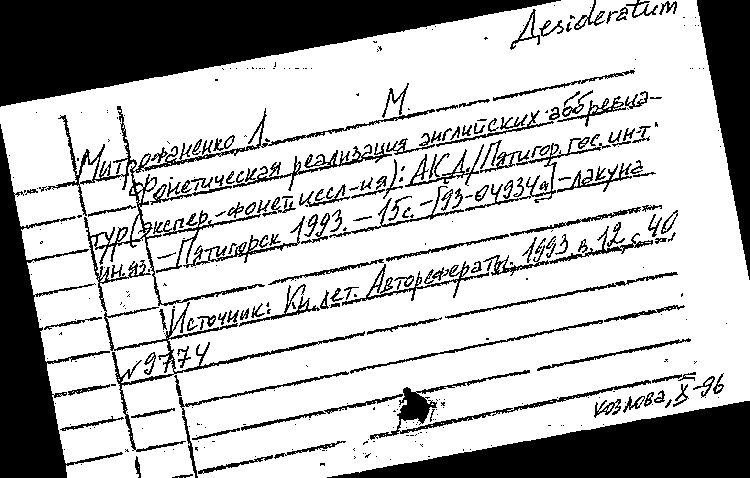 Desideratum
М
Митрофаненко, Л.
Фонетическая реализация английских аббревиа-
тур (экспер.-фонет. иссл-ия): АКД/Пятигор. гос. инт.
ин. яз. – Пятигорск, 1993. – 15с. – [93-04934а] – лакуна
Источник: Кн. лет. Авторефераты, 1993 в. 12, с. 40,
№ 9774
Козлова, X-96